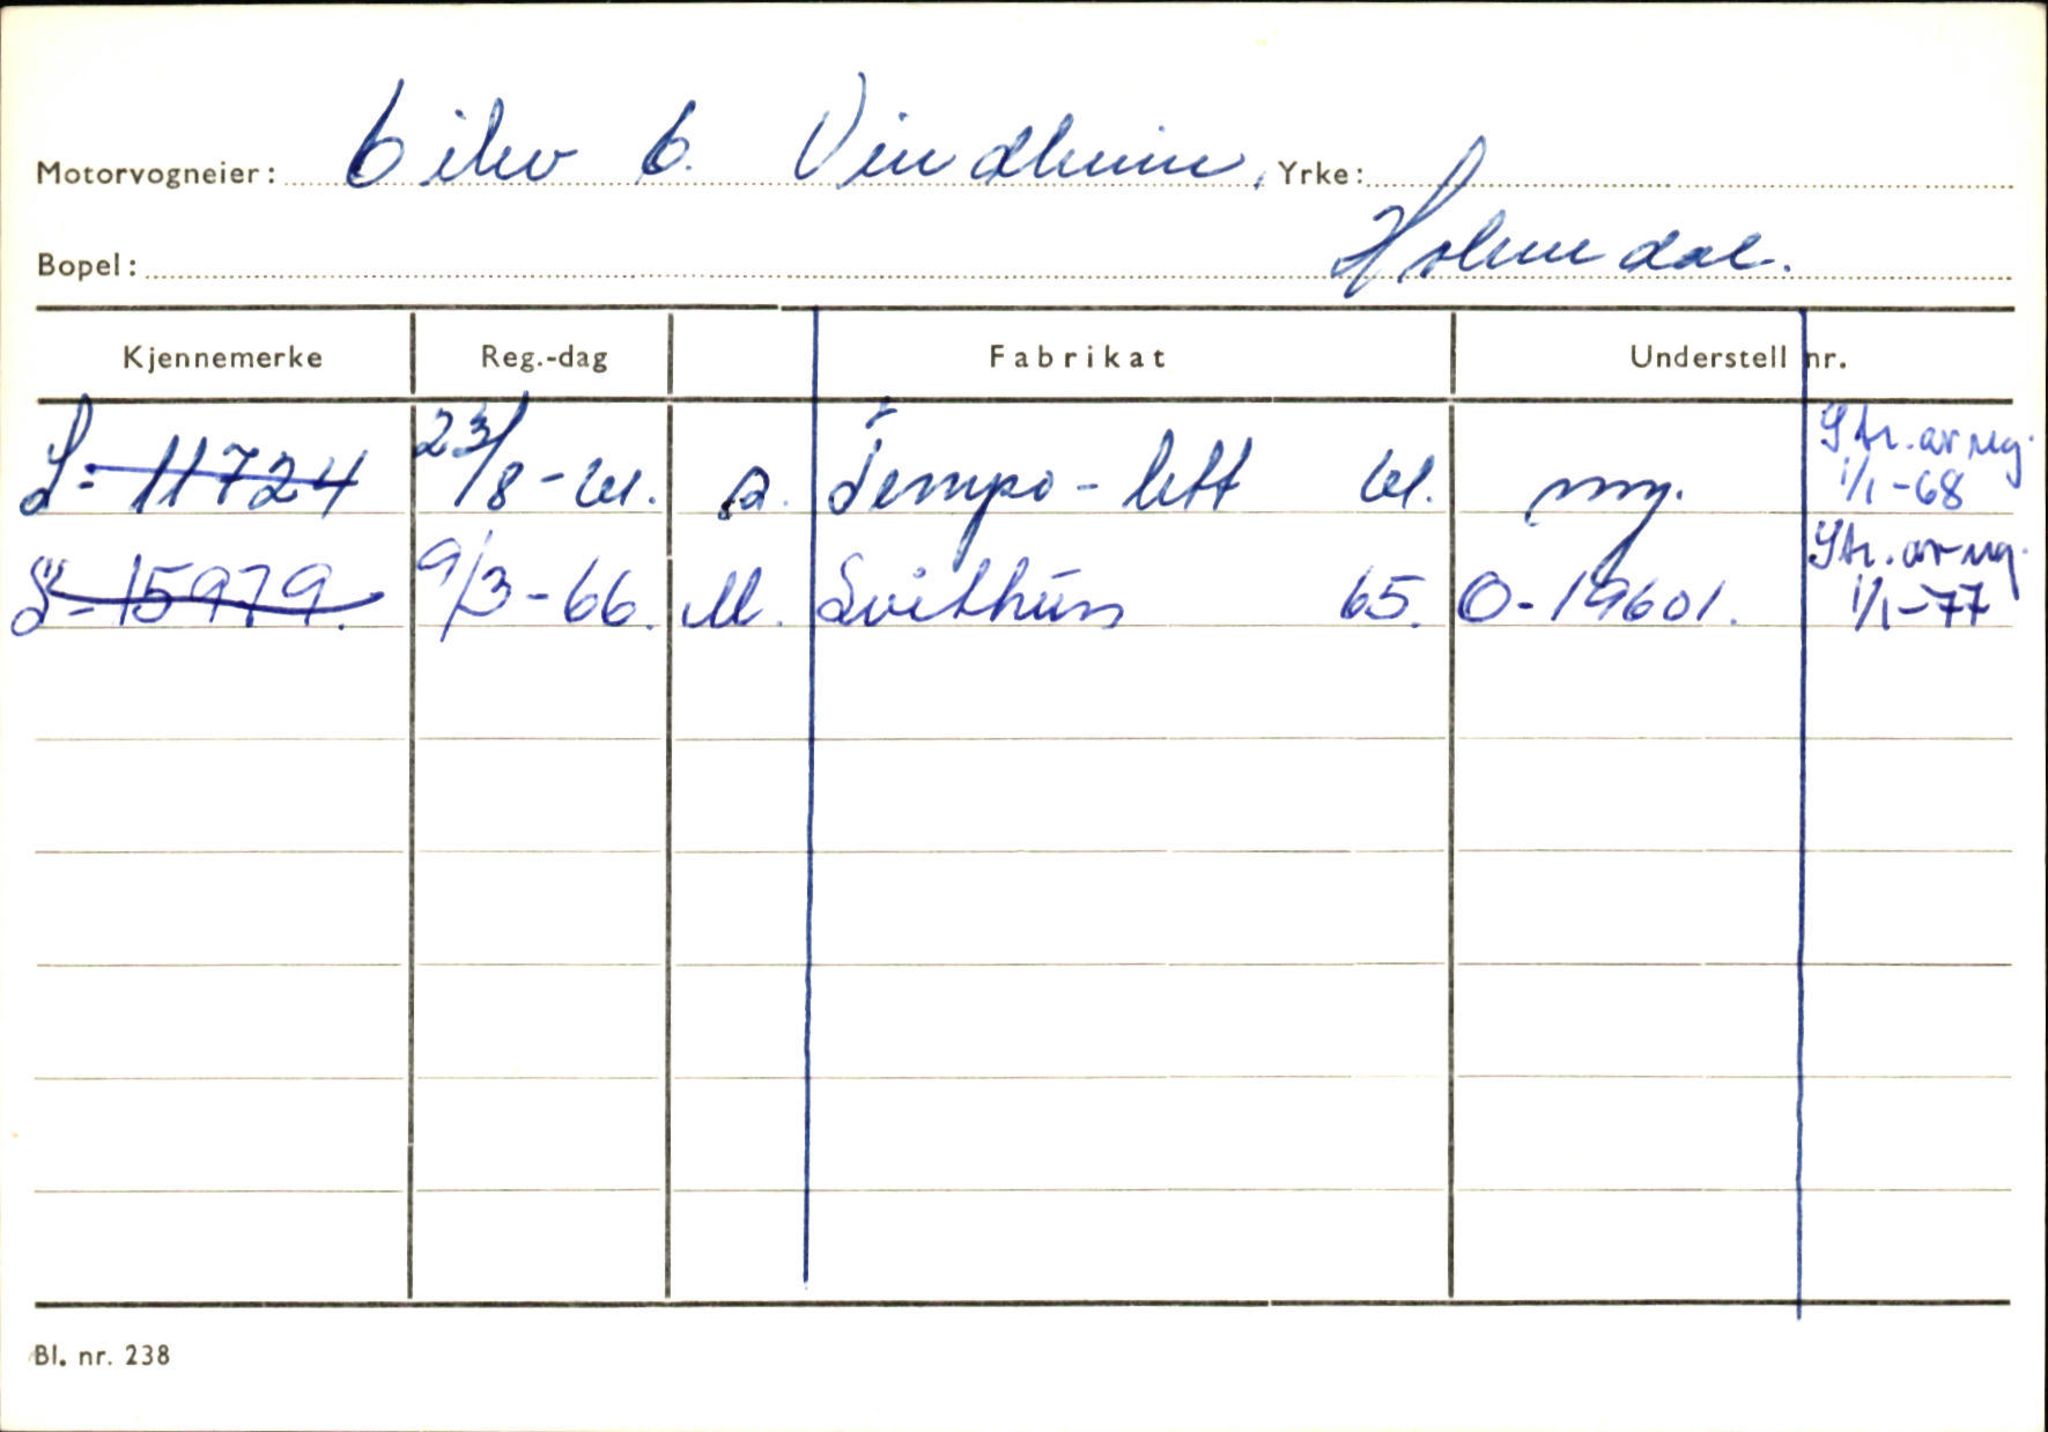 Motorvogneier: Eilev E. Vindheim, Yrke:
Bopel: Holmedal.
Kjennemerke Reg.-dag Fabrikat Understell nr.
S-11724 23/8-61. a. Tempo-lett 61. ny. Str. av reg. 1/1-68
S-15979. 9/3-66. M. Svithun 65. O-19601. Str. av reg. 1/1-77
Bl. nr. 238